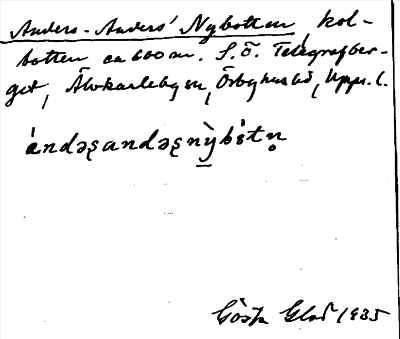 Anders-Anders' Nybotten, kol-
botten ca 600 m. S.Ö. Telegrafber-
get, Älvkarleby sn, Örbyhus hd, Upps. l.
ándəʂandəʂnỳbɵ́tn̥
Gösta Glad 1935